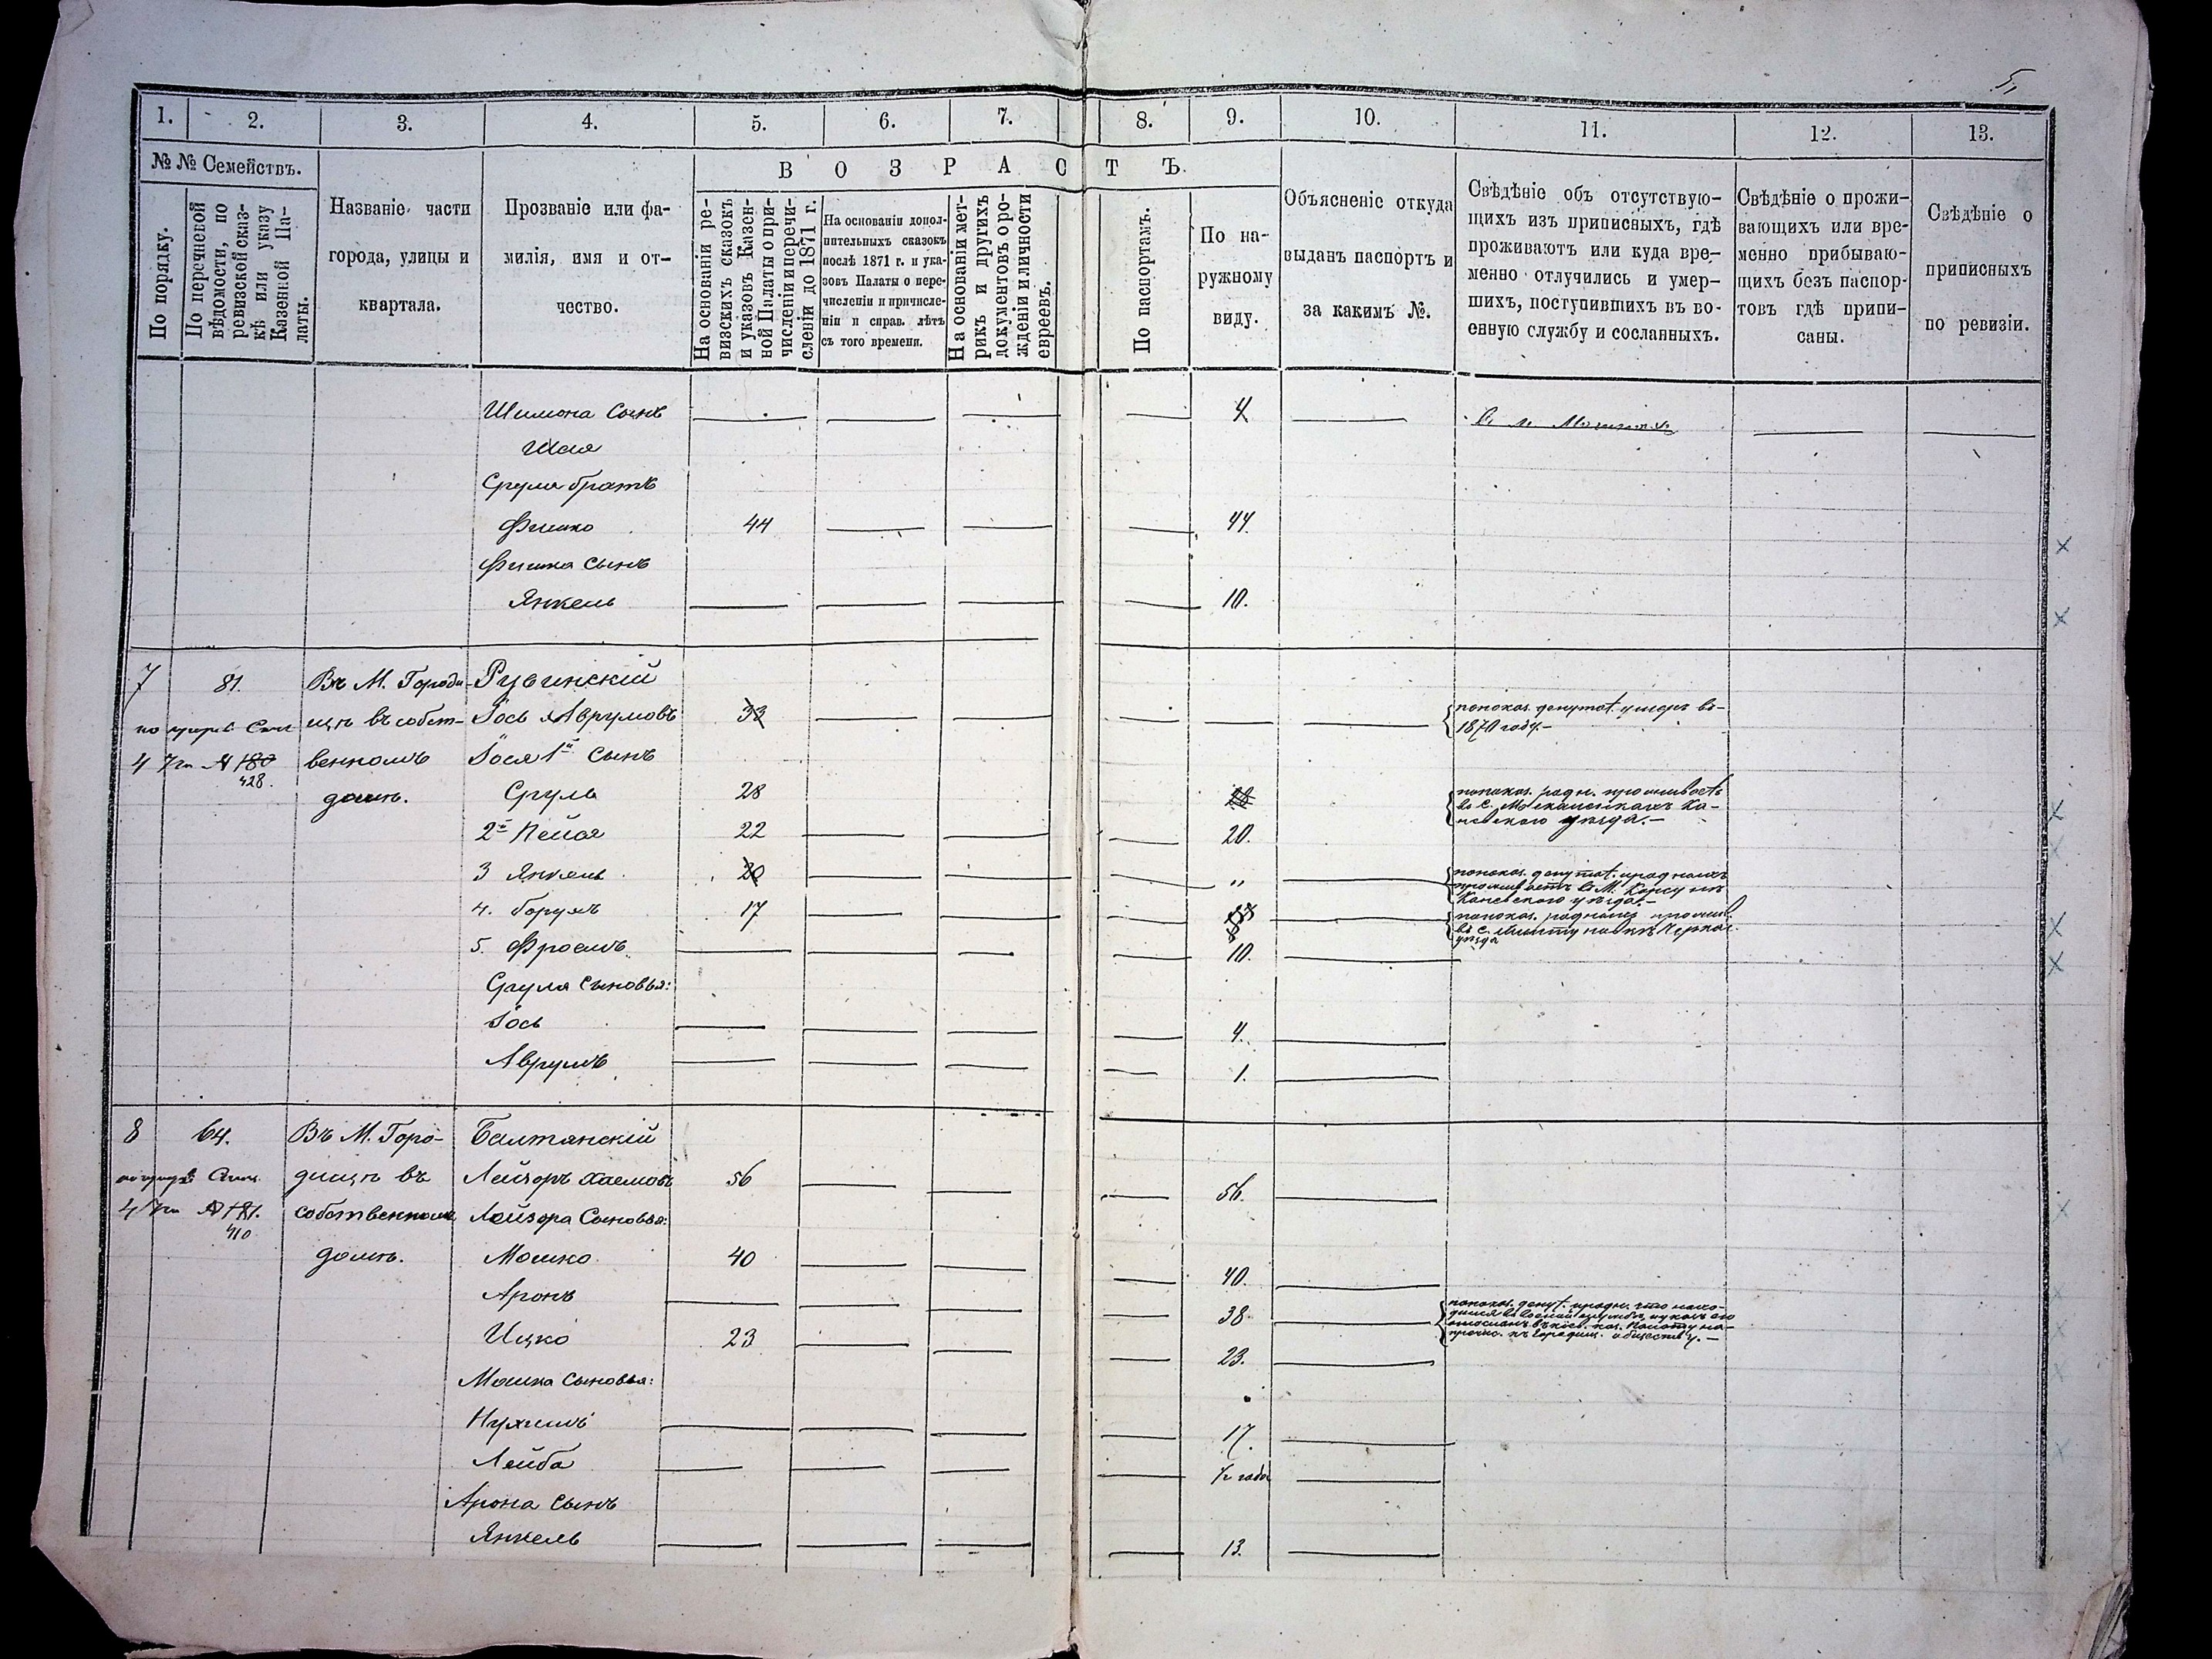 5,
1. 2. 3. 4. 5. 6. 7. 8. 9. 10. 11. 12. 13.
№ № Семействъ.
По порядку.
По перечневой
вѣдомости, по
ревизской сказ-
кѣ или указу
Казенной Па-
латы.
Названіе части
города, улицы и
квартала.
Прозваніе или фа-
милія, имя и от-
чество.
ВОЗРАСТЪ.
На основаніи ре-
визскихъ сказокъ
и указовъ Казен-
ной Палаты о при-
численіи и перечи-
сленіи до 1871 г.
На основаніи допол-
нительныхъ сказокъ
послѣ 1871 г. и ука-
зовъ Палаты о пере-
численіи и причисле-
ніи и справ. лѣтъ
съ того времени.
На основаніи мет-
рикъ и другихъ
документовъ о ро-
жденіи и личности
евреевъ.
По паспортамъ.
По на-
ружному
виду.
Объясненіе откуда
выданъ паспортъ и
за какимъ №.
Свѣдѣніе объ отсутствую-
щихъ изъ приписныхъ, гдѣ
проживаютъ или куда вре-
менно отлучились и умер-
шихъ, поступившихъ въ во-
енную службу и сосланныхъ.
Свѣдѣніе о прожи-
вающихъ или вре-
менно прибываю-
щихъ безъ паспор-
товъ гдѣ припи-
саны.
Свѣдѣніе о
приписныхъ
по ревизіи.
Шимона Сынъ 4
Шая
Сруля братъ
Фишко 44 44.
Фишка Сынъ
Янкель 10.
7 81. Въ М. Городи- Рувинскій
щѣ въ собст- Іось Аврумовъ 33
покоз. депутат. умеръ въ
1870 году.-
4 № 180 венномъ Іося 1й Сынъ
428.
домѣ. Сруль 28
покоз. радн. проживаетъ
въ С.
уѣзда.-
2й Пейся 22 20.
3 Янкель 20 "
покоз. депутат.
проживаетъ въ М. Корсунѣ
Каневского уѣзда.-
4. Борухъ 17
въ С.
уѣзда
5. Фроимъ 10.
Сруля Сыновья:
Іось 4.
Аврумъ 1.
8 64. Въ М. Горо- Балтянскій
дищѣ въ Лейзоръ Хаемовъ 56 56.
4 № 181. собственномъ Лейзора Сыновья:
410
домѣ. Мошко 40 40.
Аронъ 38
Ицко 23 23.
Мошка Сыновья:
Нухимъ 17.
Лейба 1/2 года
Арона Сынъ
Янкель 13.